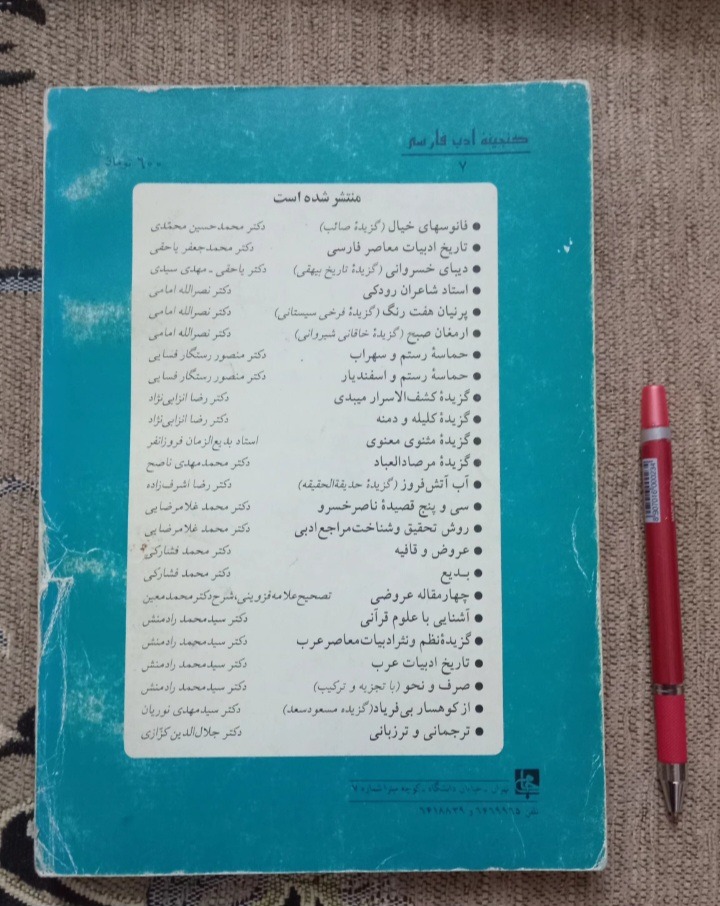 گنجینهٔ ادب فارسی
۷
۶۰۰ تومان
منتشر شده است
● فانوسهای خیال (گزیدهٔ صائب) دکتر محمدحسین محمّدی
● تاریخ ادبیات معاصر فارسی دکتر محمدجعفر یاحقی
● دیبای خسروانی (گزیدهٔ تاریخ بیهقی) دکتر یاحقی ـ مهدی سیدی
● استاد شاعران رودکی دکتر نصرالله امامی
● پرنیان هفت رنگ (گزیدهٔ فرخی سیستانی) دکتر نصرالله امامی
● ارمغان صبح (گزیدهٔ خاقانی شیروانی) دکتر نصرالله امامی
● حماسهٔ رستم و سهراب دکتر منصور رستگار فسایی
● حماسهٔ رستم و اسفندیار دکتر منصور رستگار فسایی
● گزیدهٔ کشف‌الاسرار میبدی دکتر رضا انزابی‌نژاد
● گزیدهٔ کلیله و دمنه دکتر رضا انزابی‌نژاد
● گزیدهٔ مثنوی معنوی استاد بدیع‌الزمان فروزانفر
● گزیدهٔ مرصادالعباد دکتر محمدمهدی ناصح
● آب آتش‌فروز (گزیدهٔ حدیقةالحقیقه) دکتر رضا اشرف‌زاده
● سی و پنج قصیدهٔ ناصرخسرو دکتر محمد غلامرضایی
● روش تحقیق و شناخت مراجع ادبی دکتر محمد غلامرضایی
● عروض و قافیه دکتر محمد فشارکی
● بدیع دکتر محمد فشارکی
● چهارمقاله عروضی تصحیح علامه قزوینی، شرح دکتر محمد معین
● آشنایی با علوم قرآنی دکتر سیدمحمد رادمنش
● گزیدهٔ نظم ونثر ادبیات معاصر عرب دکتر سیدمحمد رادمنش
● تاریخ ادبیات عرب دکتر سیدمحمد رادمنش
● صرف و نحو (با تجزیه و ترکیب) دکتر سیدمحمد رادمنش
● از کوهسار بی‌فریاد (گزیده مسعودسعد) دکتر سیدمهدی نوریان
● ترجمانی و ترزبانی دکتر جلال‌الدین کزّازی
تهران ـ خیابان دانشگاه ـ کوچه میترا شماره ۷
تلفن ۶۴۶۹۹۶۵ و ۶۴۱۸۸۳۹